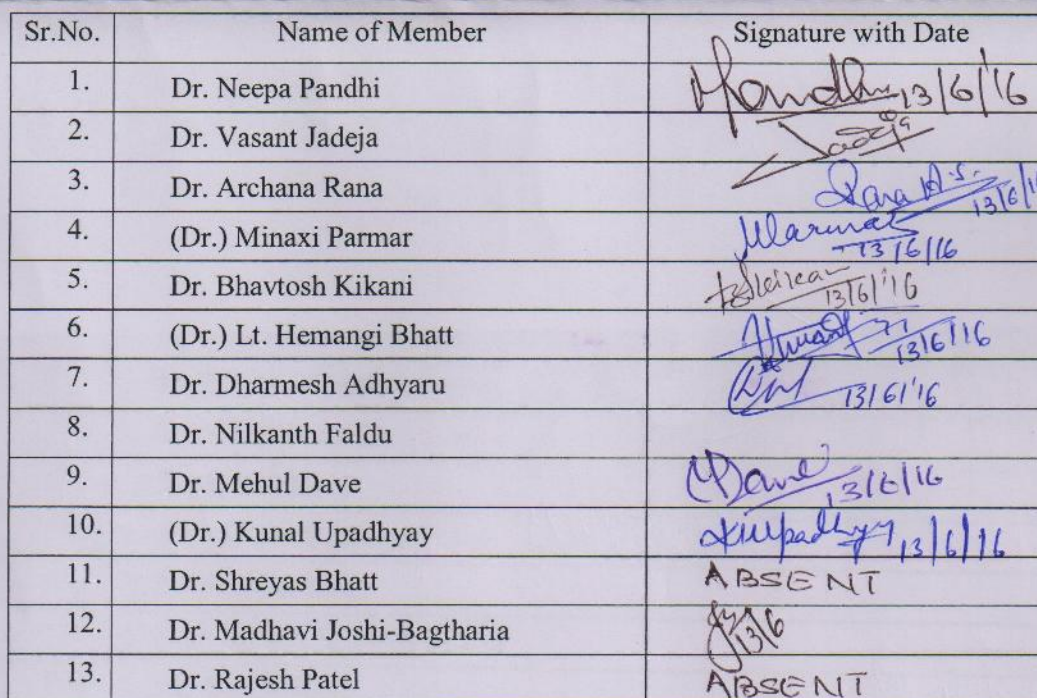 Sr.No. Name of Member Signature with Date
1. Dr. Neepa Pandhi 13/6/'16
2. Dr. Vasant Jadeja
3. Dr. Archana Rana Rana A.S. 13/6/
4. (Dr.) Minaxi Parmar 13/6/16
5. Dr. Bhavtosh Kikani 13/6/'16
6. (Dr.) Lt. Hemangi Bhatt 13/6/16
7. Dr. Dharmesh Adhyaru 13/6/'16
8. Dr. Nilkanth Faldu
9. Dr. Mehul Dave 13/6/16
10. (Dr.) Kunal Upadhyay 13/6/16
11. Dr. Shreyas Bhatt ABSENT
12. Dr. Madhavi Joshi-Bagtharia 13/6
13. Dr. Rajesh Patel ABSENT